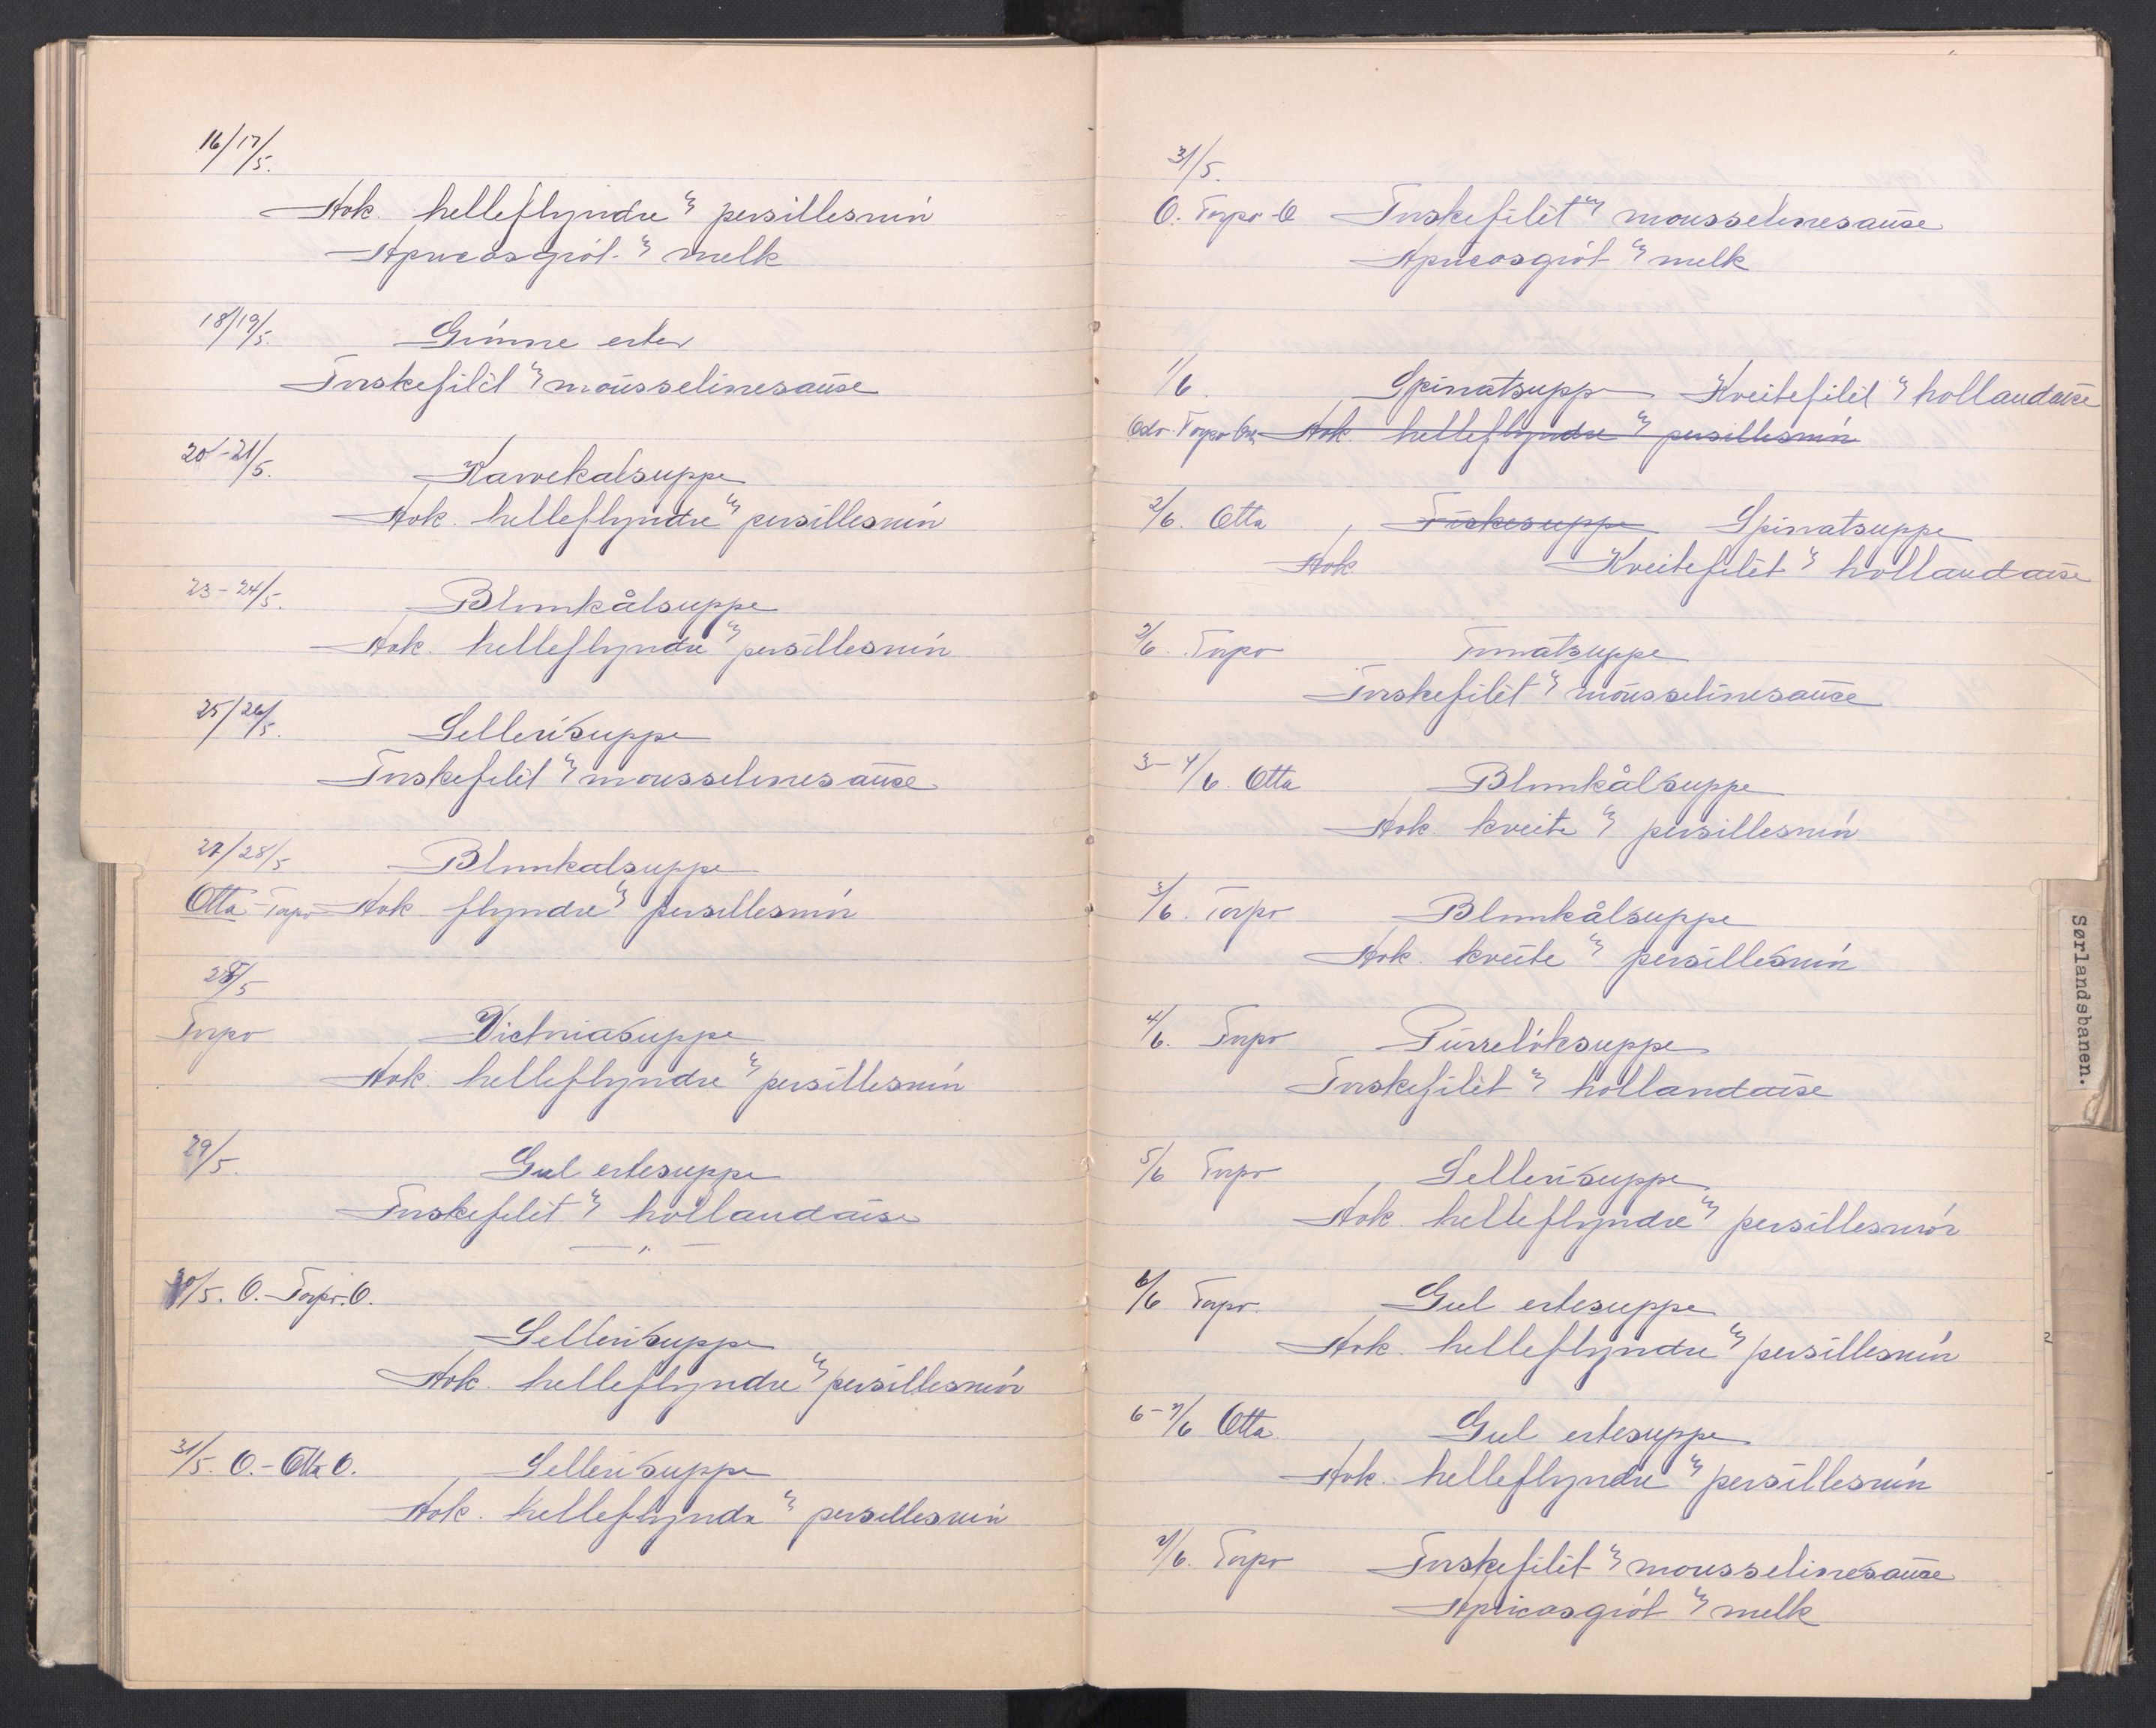 16/17/5.
Kok. helleflyndre m persillesmör
Apricosgröt m melk
18/19/5. Grönne erter
Torskefilet m mousselinesause
20-21/5. Karvekalsuppe
Kok. helleflyndre m persillesmör
23-24/5. Blomkålsuppe
Kok. helleflyndre m persillesmör
25/26/5. Sellerisuppe
Torskefilet m mousselinesause
27/28/5 Blomkalsuppe
Otta-Torpo Kok flyndre m persillesmör
28/5
Torpo Victoriasuppe
Kok. helleflyndre m persillesmör
29/5. Gul ertesuppe
Torskefilet m hollandaise
— " —
30/5. O.-Torpo.O.
Sellerisuppe
Kok. helleflyndre m persillesmör
31/5. O.-Otta O. Sellerisuppe
Kok. helleflyndre m persillesmör
31/5.
O. Torpo-O Torskefilet m mousselinesause
Apricosgröt m melk
1/6. Spinatsuppe Kveitefilet m hollandaise
Torpo Kok helleflyndre m persillesmör
2/6. Otta Fiskesuppe Spinatsuppe
Kok Kveitefilet m hollandaise
2/6. Torpo Tomatsuppe
Torskefilet m mousselinesause
3-4/6. Otta Blomkålsuppe
Kok. kveite m persillesmör
3/6. Torpo Blomkålsuppe
Kok. kveite m persillesmör
4/6. Torpo Purrelöksuppe
Torskefilet m hollandaise
5/6 Torpo Sellerisuppe
Kok. helleflyndre m persillesmör
6/6 Torpo. Gul ertesuppe
Kok. helleflyndre m persillesmör
6-7/6 Otta Gul ertesuppe
Kok. helleflyndre m persillesmör
7/6. Torpo Torskefilet m mousselinesause
Apricosgröt m melk
Sørlandsbanen.